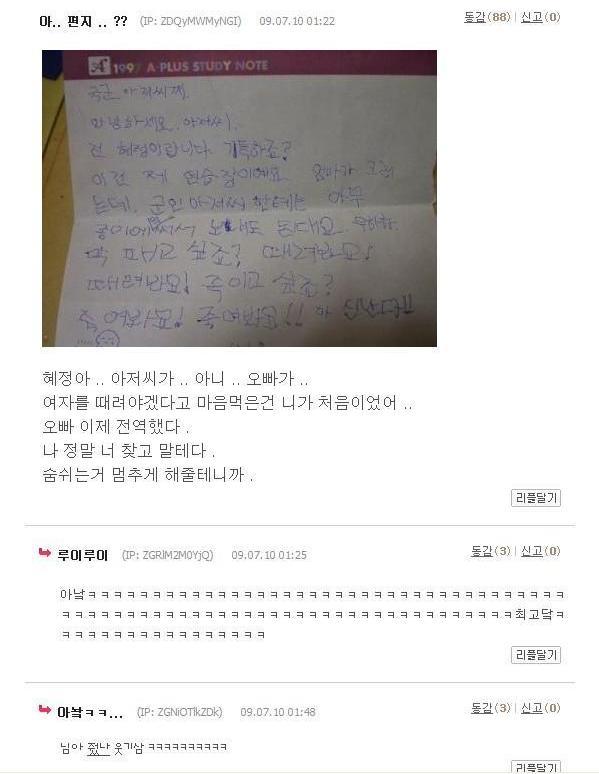 아.. 편지 .. ?? (IP: ZDQyMWMyNGI) 09.07.10 01:22 동감(88) | 신고(0)
A 1997 A-PLUS STUDY NOTE
국군 아저씨께.
안녕하세요. 아저씨.
전 혜정이랍니다. 기특하죠?
이건 제 연습장이예요. 엄마가 그러
는데, 군인아저씨 한테는 아무
종이에 써서 보내도 된대요. 우하하.
막 패고 싶죠? 때려봐요!
때려봐요! 죽이고 싶죠?
죽여봐요! 죽여봐요!! 아 신난다!!
혜정아 .. 아저씨가 .. 아니 .. 오빠가 ..
여자를 때려야겠다고 마음먹은건 니가 처음이었어 ..
오빠 이제 전역했다 .
나 정말 너 찾고 말테다 .
숨쉬는거 멈추게 해줄테니까 .
리플달기
루이루이 (IP: ZGRlM2M0YjQ) 09.07.10 01:25 동감(3) | 신고(0)
아낰ㅋㅋㅋㅋㅋㅋㅋㅋㅋㅋㅋㅋㅋㅋㅋㅋㅋㅋㅋㅋㅋㅋㅋㅋㅋㅋㅋㅋㅋㅋㅋㅋㅋㅋㅋㅋㅋ
ㅋㅋㅋㅋㅋㅋㅋㅋㅋㅋㅋㅋㅋㅋㅋㅋㅋㅋㅋㅋㅋㅋㅋㅋㅋㅋㅋㅋㅋㅋㅋㅋㅋㅋㅋ최고닼ㅋ
ㅋㅋㅋㅋㅋㅋㅋㅋㅋㅋㅋㅋㅋㅋㅋㅋ
리플달기
아놬ㅋㅋ... (IP: ZGNiOTlkZDk) 09.07.10 01:48 동감(3) | 신고(0)
님아 젔난 웃기삼 ㅋㅋㅋㅋㅋㅋㅋㅋㅋㅋ
리플달기